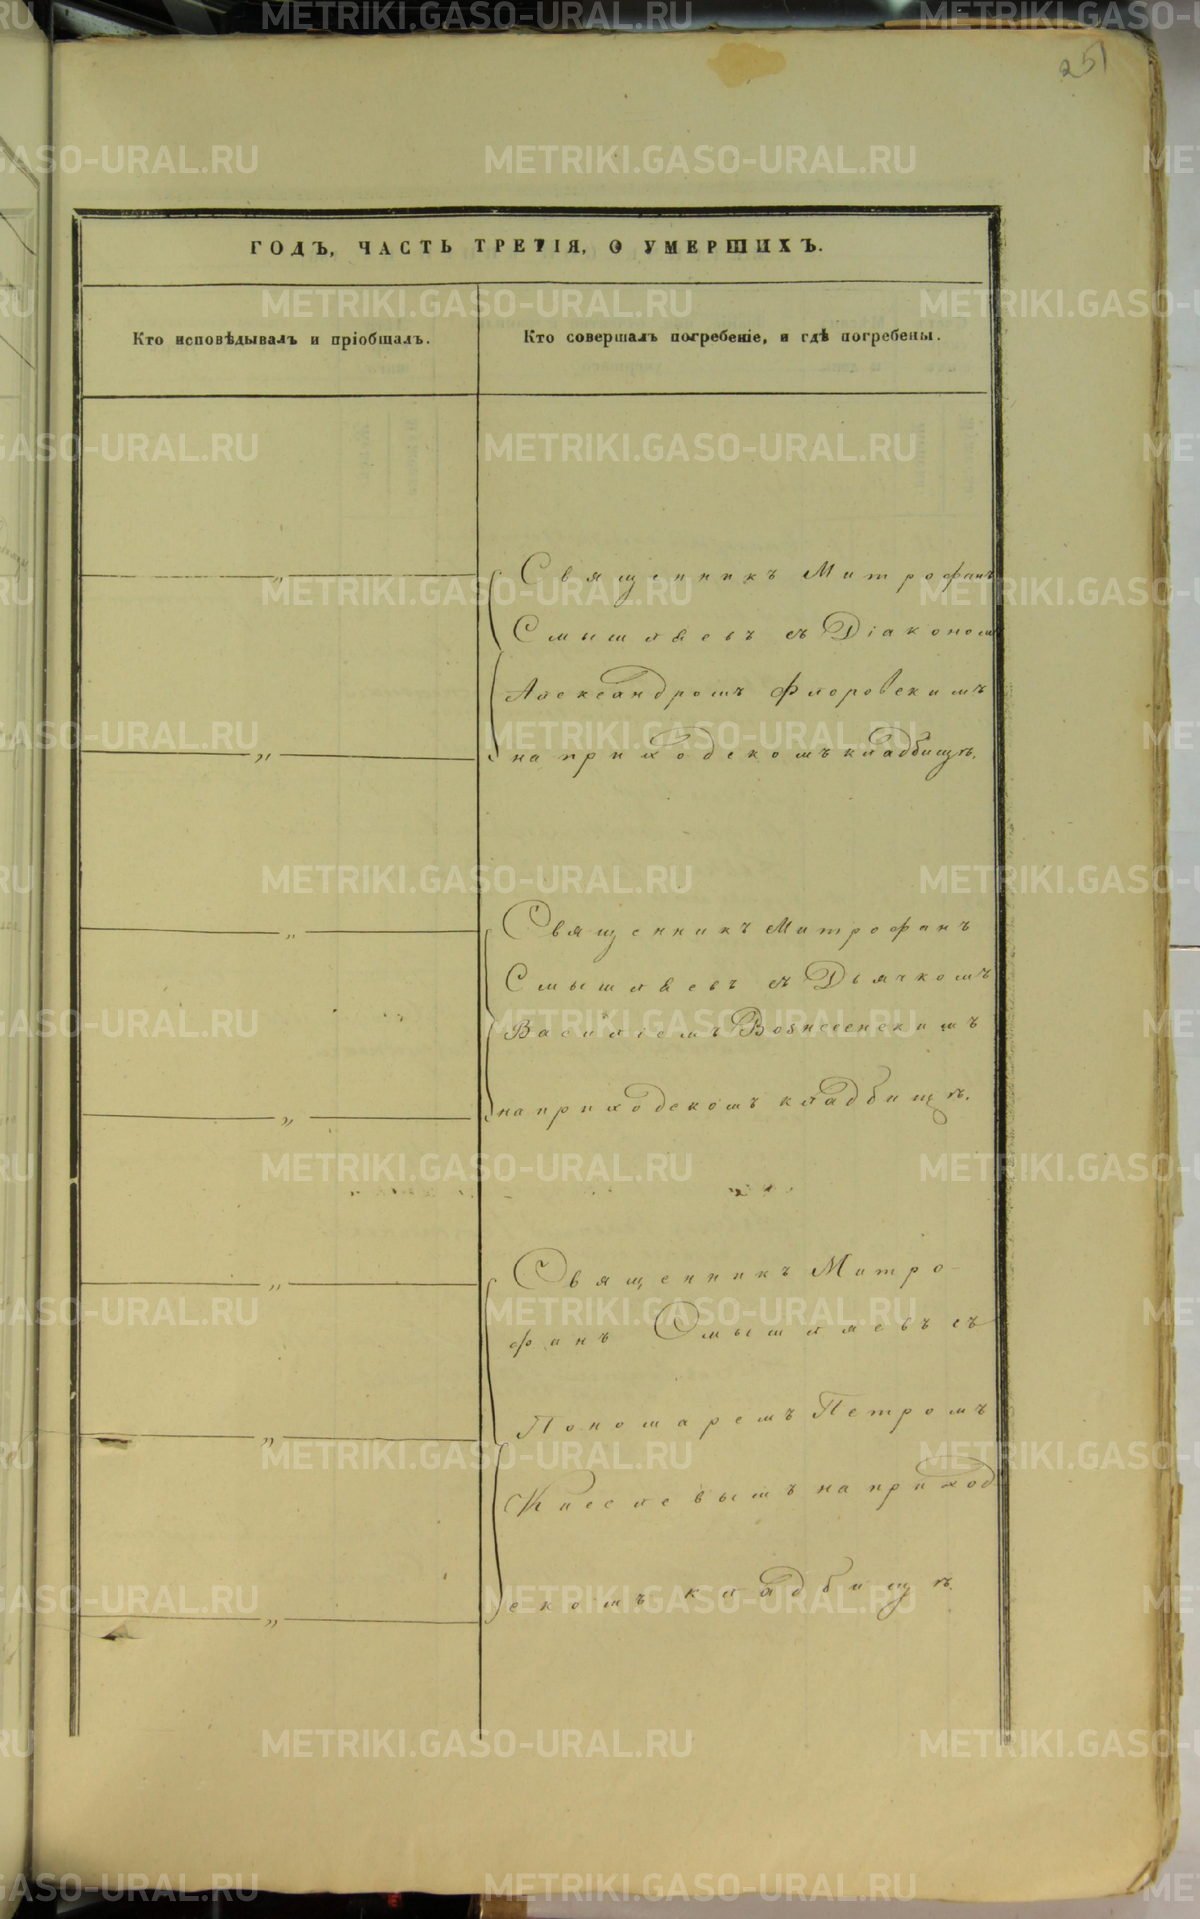 251
ГОДЪ, ЧАСТЬ ТРЕТІЯ, О УМЕРШИХЪ.
Кто исповѣдывалъ и пріобщалъ.
Кто совершалъ погребеніе, и гдѣ погребены.
„ Священникъ Митрофанъ
Смышляевъ съ Діакономъ
Александромъ Флоровскимъ
„ на приходскомъ кладбищѣ.
„ Священникъ Митрофанъ
Смышляевъ съ Дьячкомъ
Василіемъ Вознесенскимъ
„ на приходскомъ кладбищѣ.
„ Священникъ Митро-
фанъ Смышляевъ съ
„ Пономаремъ Петромъ
Киселевымъ на приход
„ скомъ кладбищѣ.
METRIKI.GASO-URAL.RU